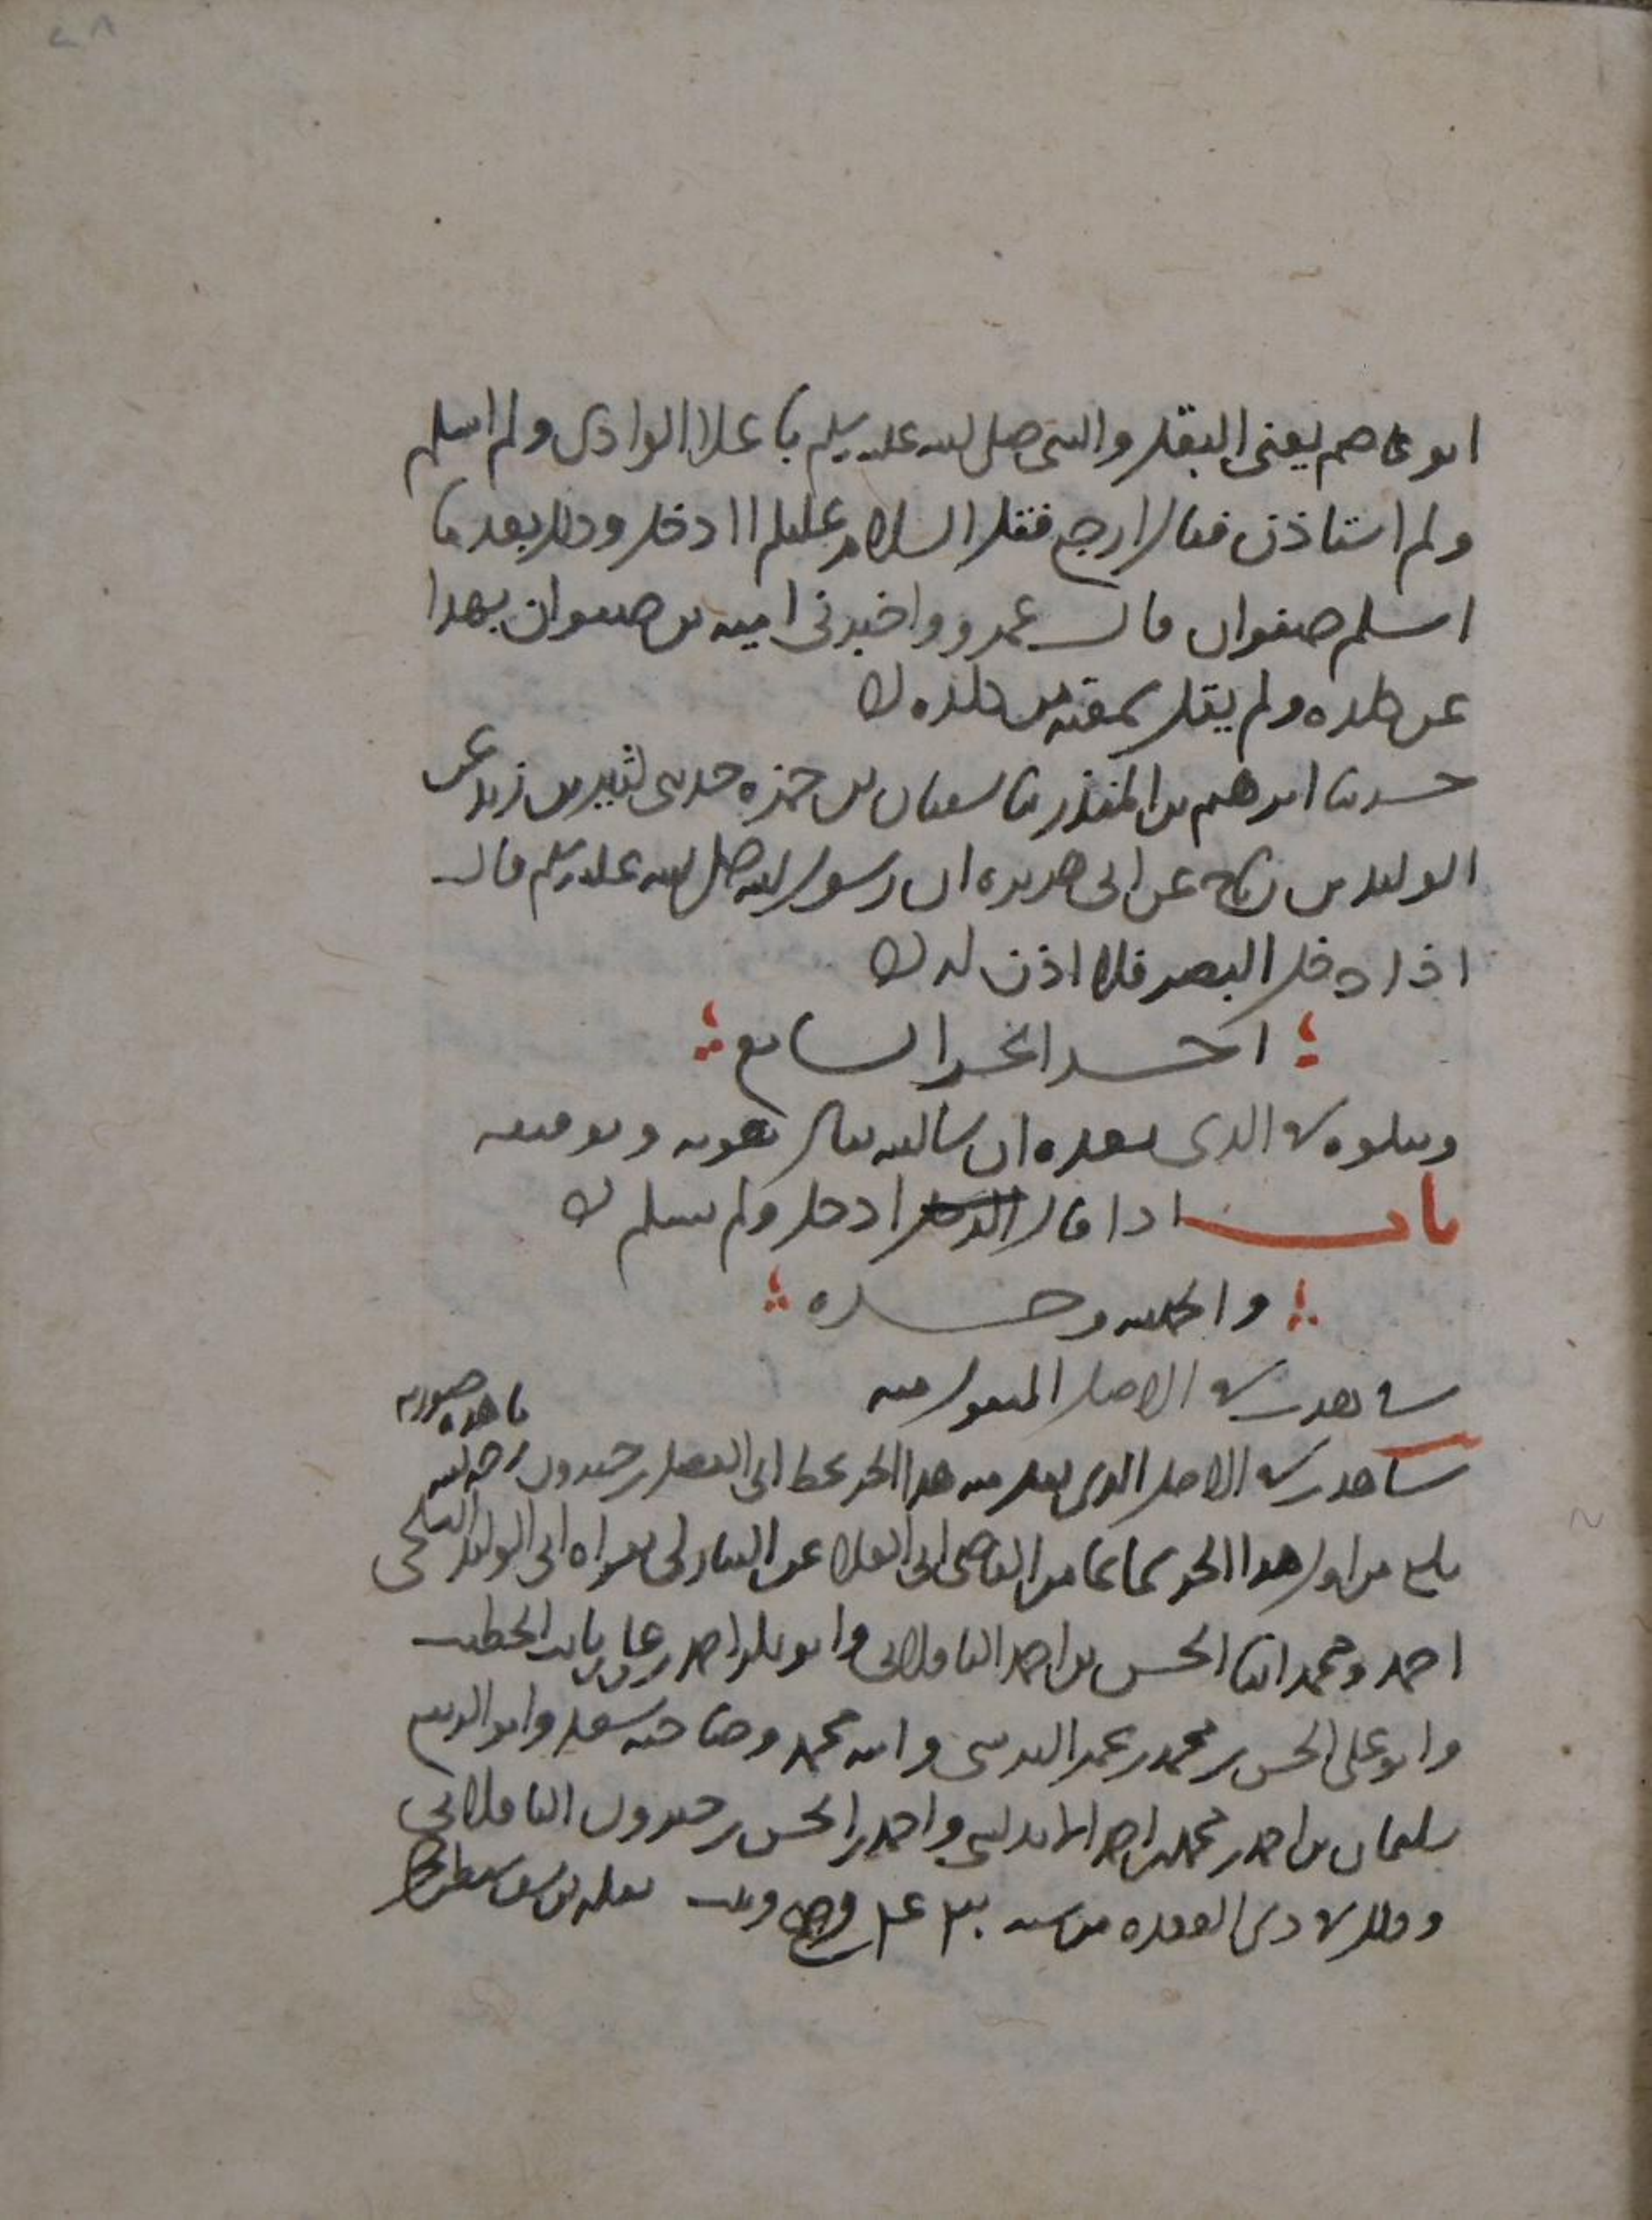 ابو عاصم يعنى البقل والنبى صلى الله عليه وسلم باعلا الوادى ولم اسلم
ولم استاذن فقال ارجع فقل السلام عليكم اادخل وذلك بعد ما
اسلم صفوان قال عمرو واخبرنى اميه بن صفوان بهذا
عن كلده ولم يقل سمعته من كلده
حدثنا ابرهيم بن المنذر ثنا سفيان بن حمزه حدثنى كثير بن زيد عن
الوليد بن رباح عن ابى هريره ان رسول الله صلى الله عليه وسلم قال
اذا دخل البصر فلا اذن له
اخر الجزء السابع
ويتلوه فى الذى بعده ان شا الله تعالى بعونه وتوفيقه
باب اذا قال ادخل ولم يسلم
والحمد لله وحده
شاهدت فى الاصل المنقول منه
ما هذه صورته
شاهدت فى الاصل الذى نقل منه هذا الجزء بخط ابى الفضل بن خيرون رحمه الله
بلغ من اول هذا الجزء سماعا من القاضى ابى العلا عن النيازكى بقراه ابى الوليد البلخى
احمد ومحمد ابنا الحسن بن احمد الباقلانى وابو بكر احمد بن على بن ثابت الخطيب
وابو على الحسن بن محمد بن عمر النرسى وابنه محمد وصاحبه سعد وابو الربيع
سليمان بن احمد بن محمد بن احمد الاندلسى واحمد بن الحسن بن خيرون الباقلانى
وذلك فى ذى القعده من سنه وصح وثبت نقله